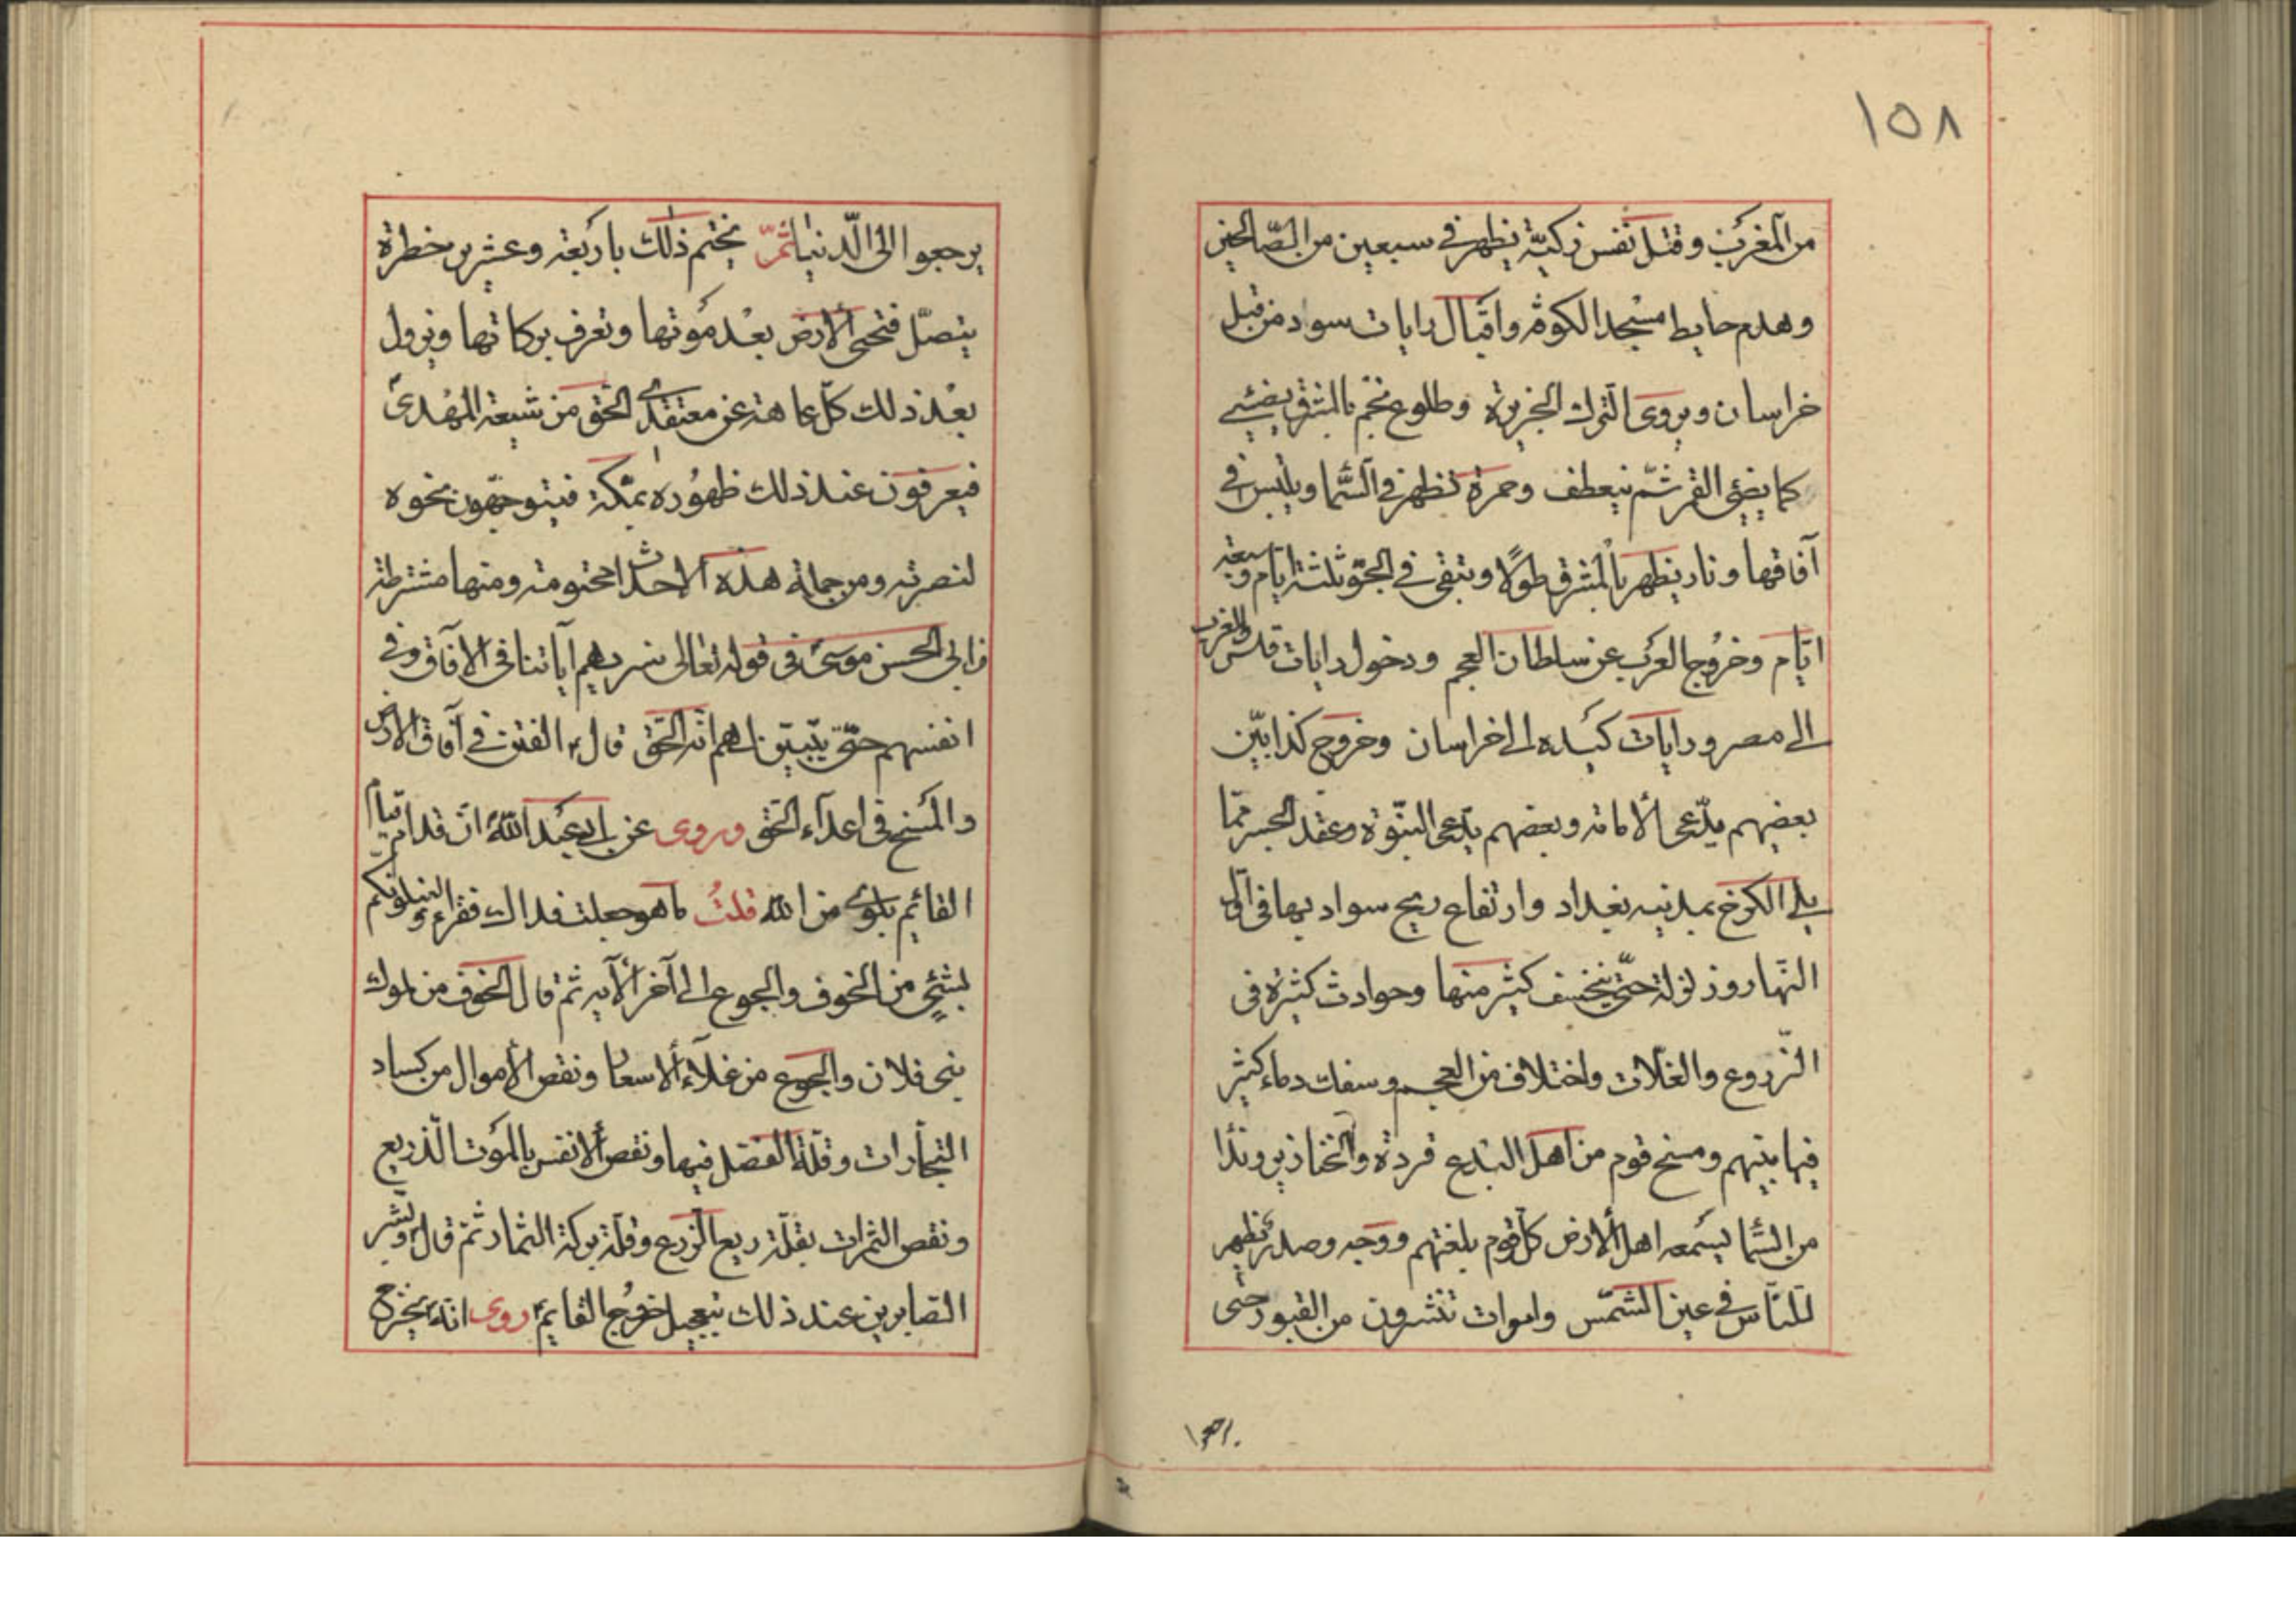 ١٥٨
من المغرب وقتل نفس زكيّة يظهر في سبعين من الصّالحين
وهدم حايط مسجد الكوفة واقبال رايات سود من قبل
خراسان ويروى الترك الجزيرة وطلوع نجم بالمشرق يضئ
كما يضئ القمر ثمّ ينعطف وحمرة تظهر في السّما ويلبس في
آفاقها ونار يظهر بالمشرق طولًا وتبقى في الجوّ ثلثة ايام وسبعة
ايّام وخروج العرب عن سلطان العجم ودخول رايات قيس والعرب
الى مصر ورايات كنده الى خراسان وخروج كذابيّن
بعضهم يدّعى الامامة وبعضهم يدّعى النبّوة وعقد الجسر ممّا
يلى الكرخ بمدينه بغداد وارتفاع ريح سواد بها في اوّل
النّهار وزلزلة حتّى ينخسف كثير منها وحوادث كثيرة في
الزّروع والغلّات واختلاف من العجم وسفك دماء كثير
فيما بينهم ومسخ قوم من اهل البدع قردة والخنازير وندا
من السّما يسمعه اهل الأرض كلّ قوم بلغتهم ووجه وصدر تظهر
للنّاس في عين الشمّس واموات تنشرون من القبور حتى
يرجعوا الى الدّنيا ثمّ يختم ذلك باربعة وعشرين خطرة
يتصلّ فتحيى الأرض بعد موتها وتعرف بركاتها ويزول
بعد ذلك كلّ عاهة عن معتقدى الحقّ من شيعة المهدىّ
فيعرفون عند ذلك ظهوره بمكّة فيتوجّهون نحوه
لنصرته ومن جملة هذه الاحداث محتومة ومنها مشترطة
عن ابى الحسن موسى في قوله تعالى سنريهم آياتنا في الآفاق وفي
انفسهم حتّى يتبيّن لهم انّه الحق قال الفتن في آفاق الارض
والمسخ في اعداء الحق وروى عن ابى عبد الله ان قدام قيام
القائم بلوى من الله قلت ما هو جعلت فداك فقرء ولنبلونّكم
بشئ من الخوف والجوع الى آخر الآيه ثم قال الخوف من ملوك
بنى فلان والجوع من غلاء الاسعار ونقص الأموال من كساد
التجارات وقلّة الفضل فيها ونقص الأنفس بالموت الذّريع
ونقص الثمرات بقلّة ريع الزرع وقلّة بركة الثمار ثمّ قال وبشّر
الصابرين عند ذلك بتعجيل خروج القايم روى انّه يخرج